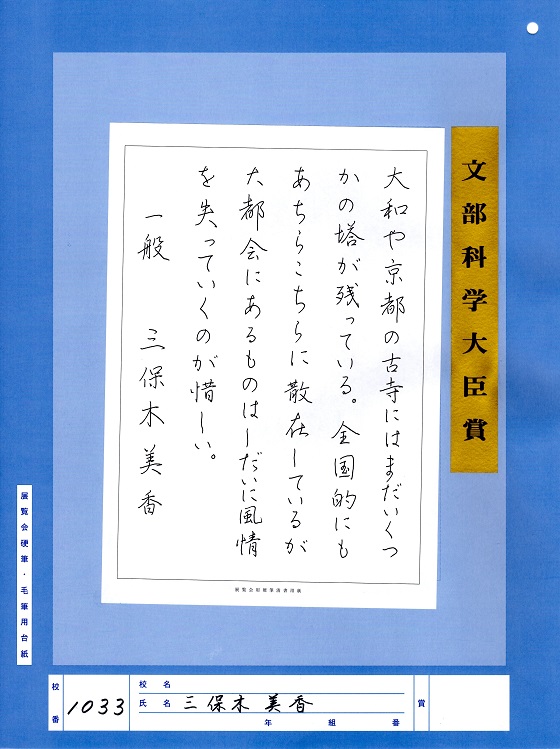 文部科学大臣賞
大和や京都の古寺にはまだいくつ
かの塔が残っている。全国的にも
あちらこちらに散在しているが
大都会にあるものはしだいに風情
を失っていくのが惜しい。
一般 三保木美香
展覧会硬筆・毛筆用台紙
校番 1033
校名
氏名 三保木 美香
年 組 番
賞